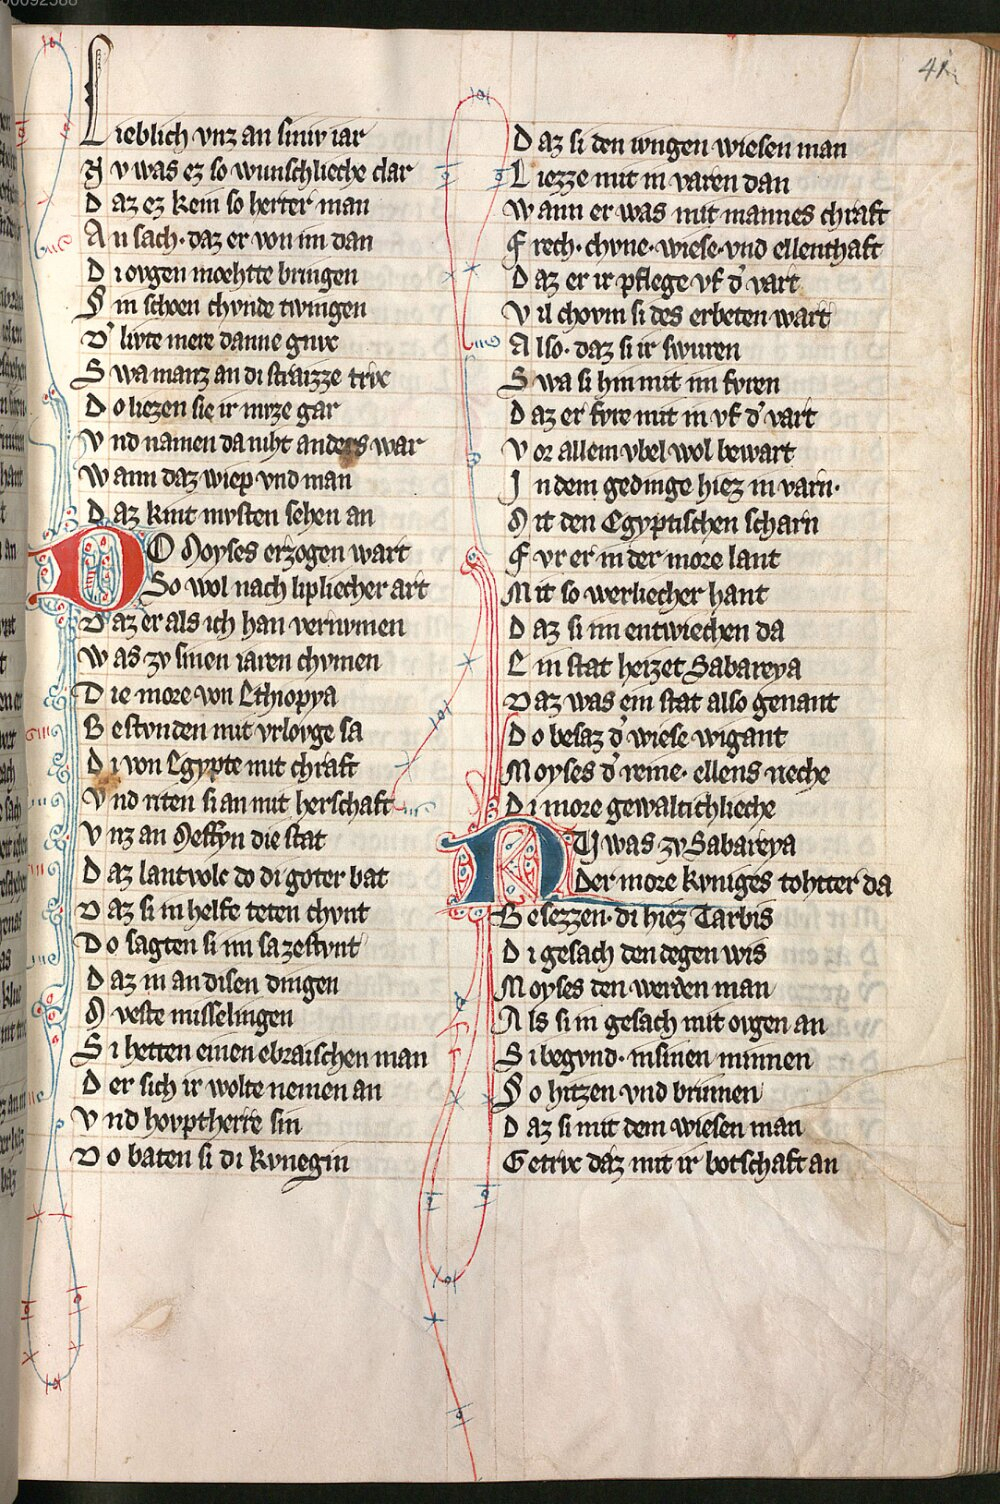 00092588
41
Lieblich vnz an siniv iar
Nv was ez so wunschlieche clar
Daz ez kein so herter man
An sach· daz er von im dan
Di ovgen moehtte bringen
Sin schoen chvnde twingen
D' livte mere danne gnvc
Swa manz an di straizze trvc
Do liezen sie ir mvze gar
Vnd namen da niht anders war
Wann daz wiep vnd man
Daz kint mvsten sehen an
DO Moyses erzogen wart
So wol nach lipliecher art
Daz er als ich han vernvmen
Was zv sinen iaren chvmen
Die more von Ethyopya
Bestvnden mit vrlovge sa
Di von Egypte mit chraft
Vnd riten si an mit herschaft
Vnz an Meffyn die stat
Daz lantvolc do di goter bat
Daz si in helfe teten chvnt
Do sagten si im sa zestvnt
Daz in an disen dingen
Mveste misselingen
Si hetten einen ebraischen man
Der sich ir wolte nemen an
Vnd hovptherre sin
Do baten si di kvnegin
Daz si den ivngen wiesen man
Liezze mit in varen dan
Wann er was mit mannes chraft
Frech· chvne· wiese· vnd ellenthaft
Daz er ir pflege vf d' vart
Vil chovm si des erbeten wart
Also· daz si ir swuren
Swa si hin mit im fvren
Daz er fvre mit in vf d' vart
Vor allem vbel wol bewart
In dem gedinge hiez in varn·
Mit den Egyptischen scharn
Fvr er in der more lant
Mit so werliecher hant
Daz si im entwiechen da
Ein stat heizet Sabareya
Daz was ein stat also genant
Do besaz d' wiese wigant
Moyses d' reine· ellens rieche
Di more gewaltichlieche
NV was zv Sabareya
Der more kvniges tohtter da
Besezzen· di hiez Tarbis
Di gesach den degen wis
Moyses den werden man
Als si in gesach mit ovgen an
Si begvnd· in sinen minnen
So hitzen vnd brinnen
Daz si mit dem wiesen man
Getrvc daz mit ir botschaft an